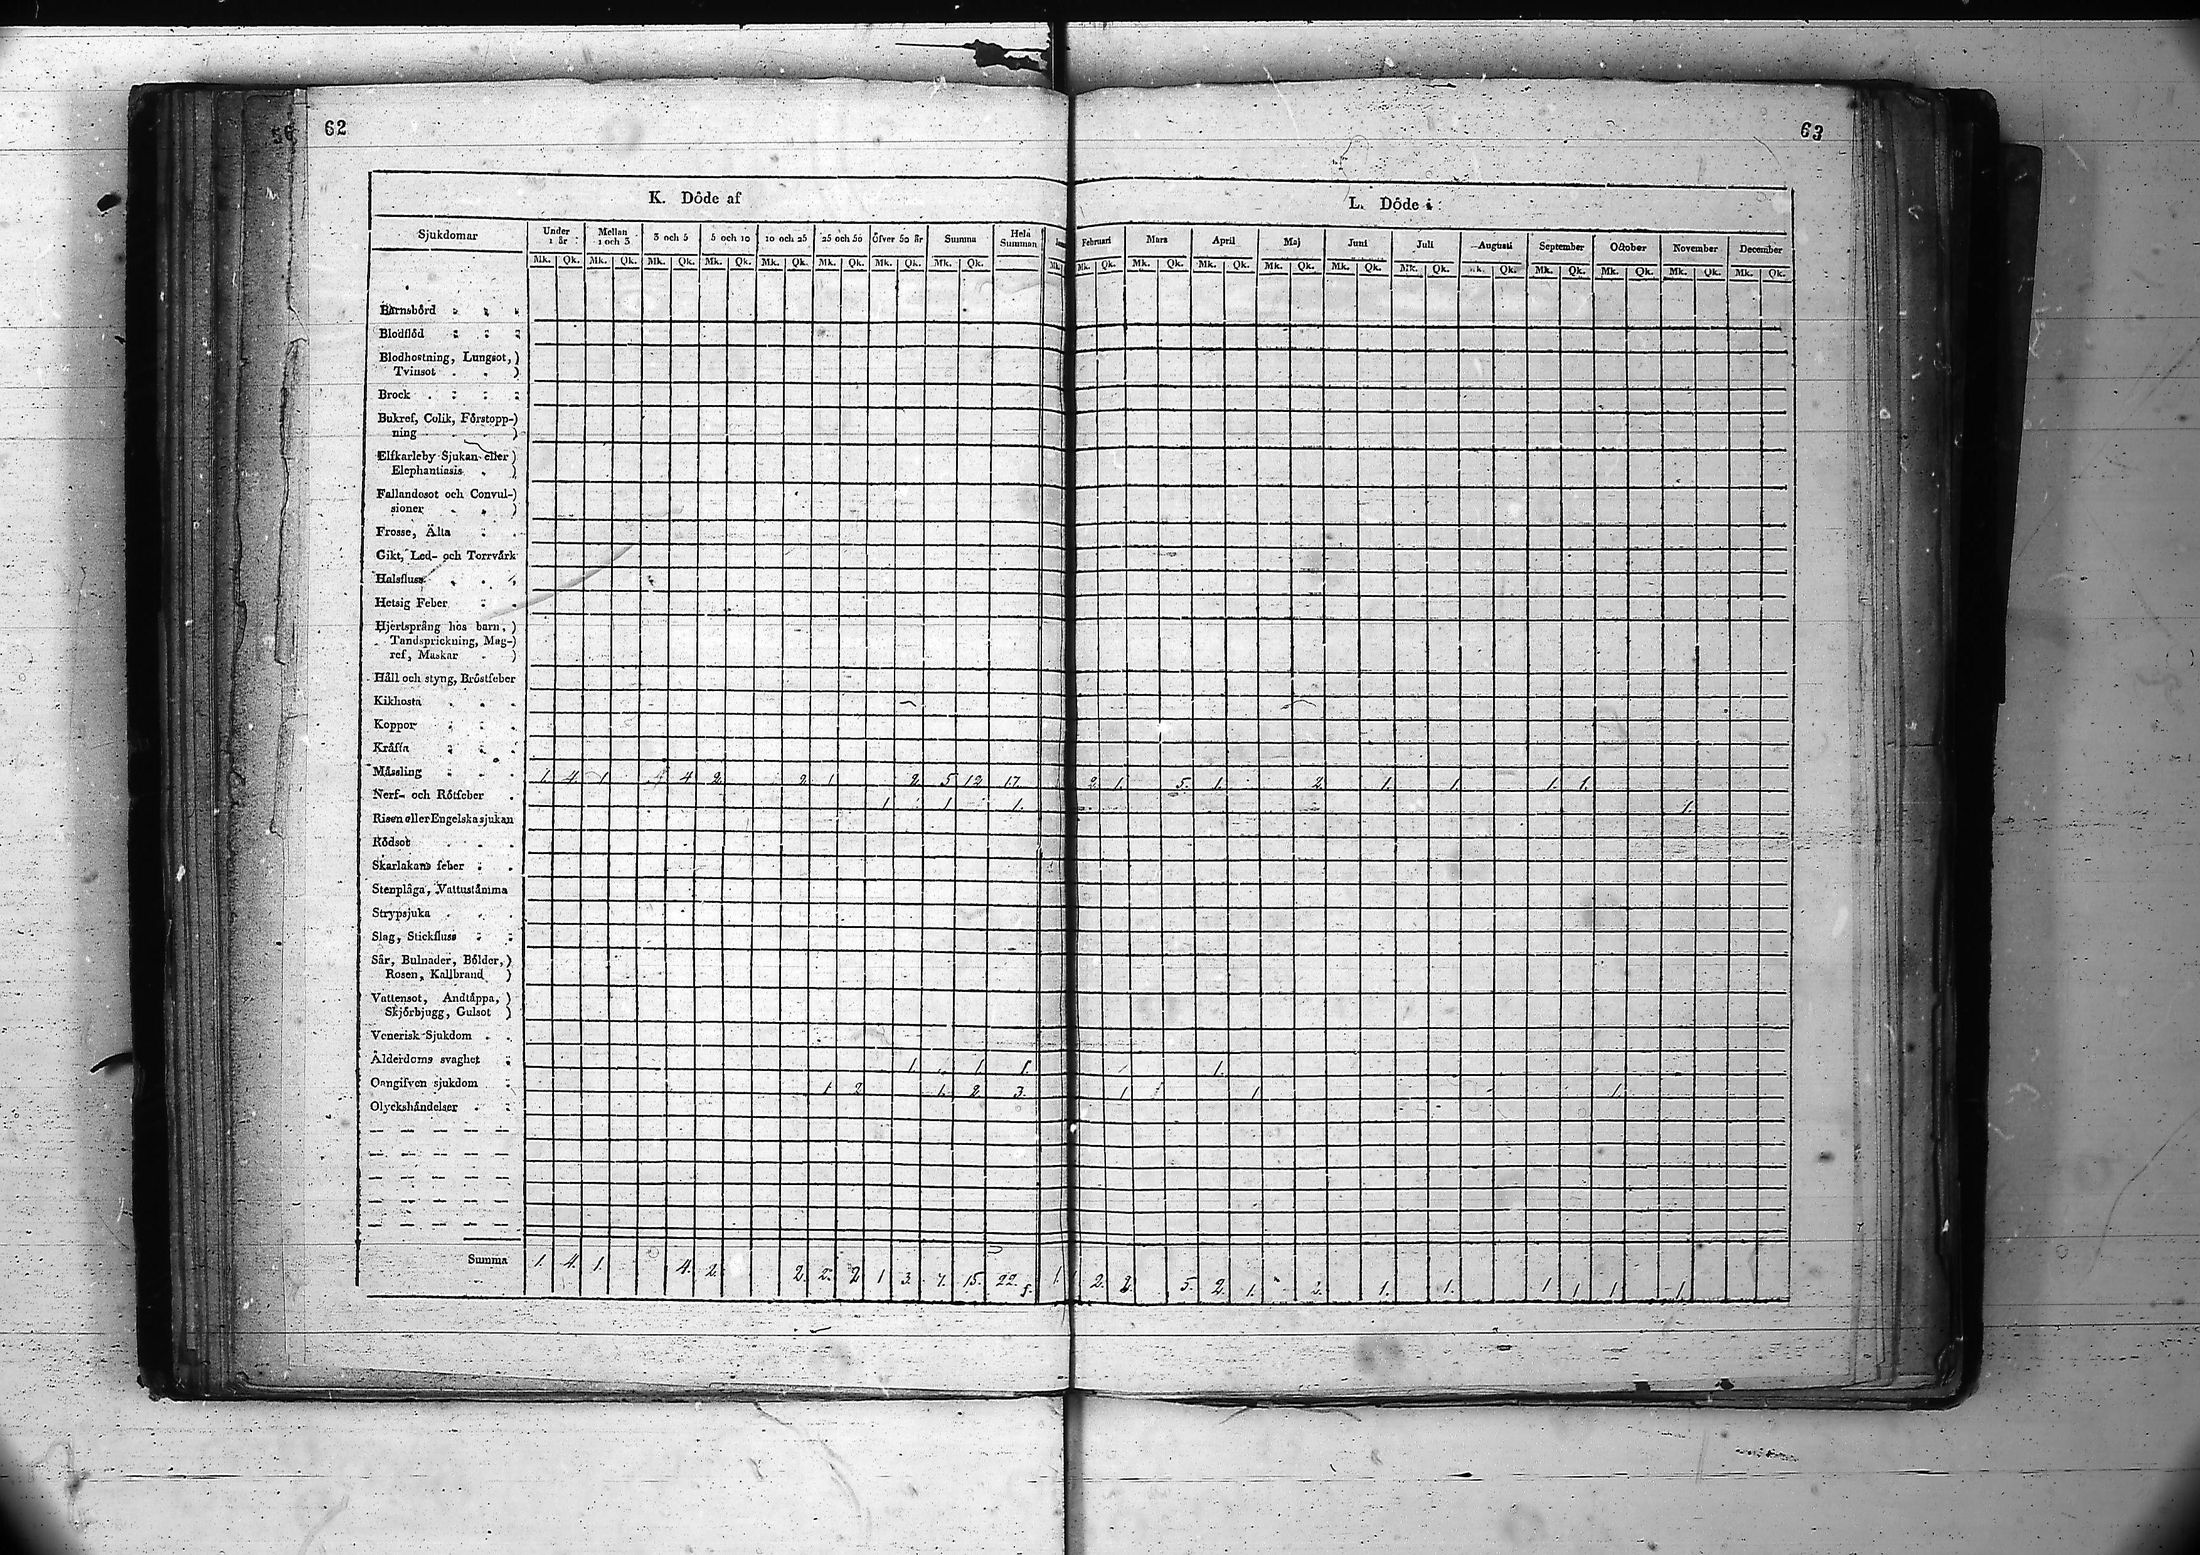 62
63
K. Döde af
L. Döde i
Sjukdomar Under 1 år Mellan 1 och 3 3 och 5 5 och 10 10 och 25 25 och 50 Öfver 50 år Summa Hela Summan
Februari Mars April Maj Juni Juli Augusti September October November December
Mk. Qk. Mk. Qk. Mk. Qk. Mk. Qk. Mk. Qk. Mk. Qk. Mk. Qk. Mk. Qk.
Mk. Mk. Qk. Mk. Qk. Mk. Qk. Mk. Qk. Mk. Qk. Mk. Qk. Mk. Qk. Mk. Qk. Mk. Qk. Mk. Qk. Mk. Qk.
Barnsbörd
Blodflöd
Blodhostning, Lungsot,)
Tvinsot )
Brock
Bukref, Colik, Förstopp-)
ning )
Elfkarleby Sjukan eller )
Elephantiasis )
Fallandosot och Convul-)
sioner )
Frosse, Älta
Gikt, Led- och Torrvärk
Halsfluss
Hetsig Feber
Hjertsprång hos barn, )
Tandsprickning, Mag-)
ref, Maskar )
Håll och styng, Bröstfeber
Kikhosta
Koppor
Kräfta
Mässling 1. 4. 1 4 2 2 1 2. 5 12 17. 2 1. 5. 1. 2. 1. 1. 1. 1.
Nerf- och Rötfeber 1 1 1. 1.
Risen eller Engelska sjukan
Rödsot
Skarlakans feber
Stenplåga, Vattustämma
Strypsjuka
Slag, Stickfluss
Sår, Bulnader, Bölder,)
Rosen, Kallbrand )
Vattensot, Andtäppa, )
Skjörbjugg, Gulsot )
Venerisk Sjukdom
Ålderdoms svaghet 1 1 1. 1.
Oangifven sjukdom 1 2 1. 2 3. 1 1 1.
Olyckshändelser
Summa 1. 4. 1. 4. 2. 2. 2. 2 1 3. 7. 15. 22. 1. 2. 2 5. 2. 1. 2. 1. 1. 1 1 1 1.